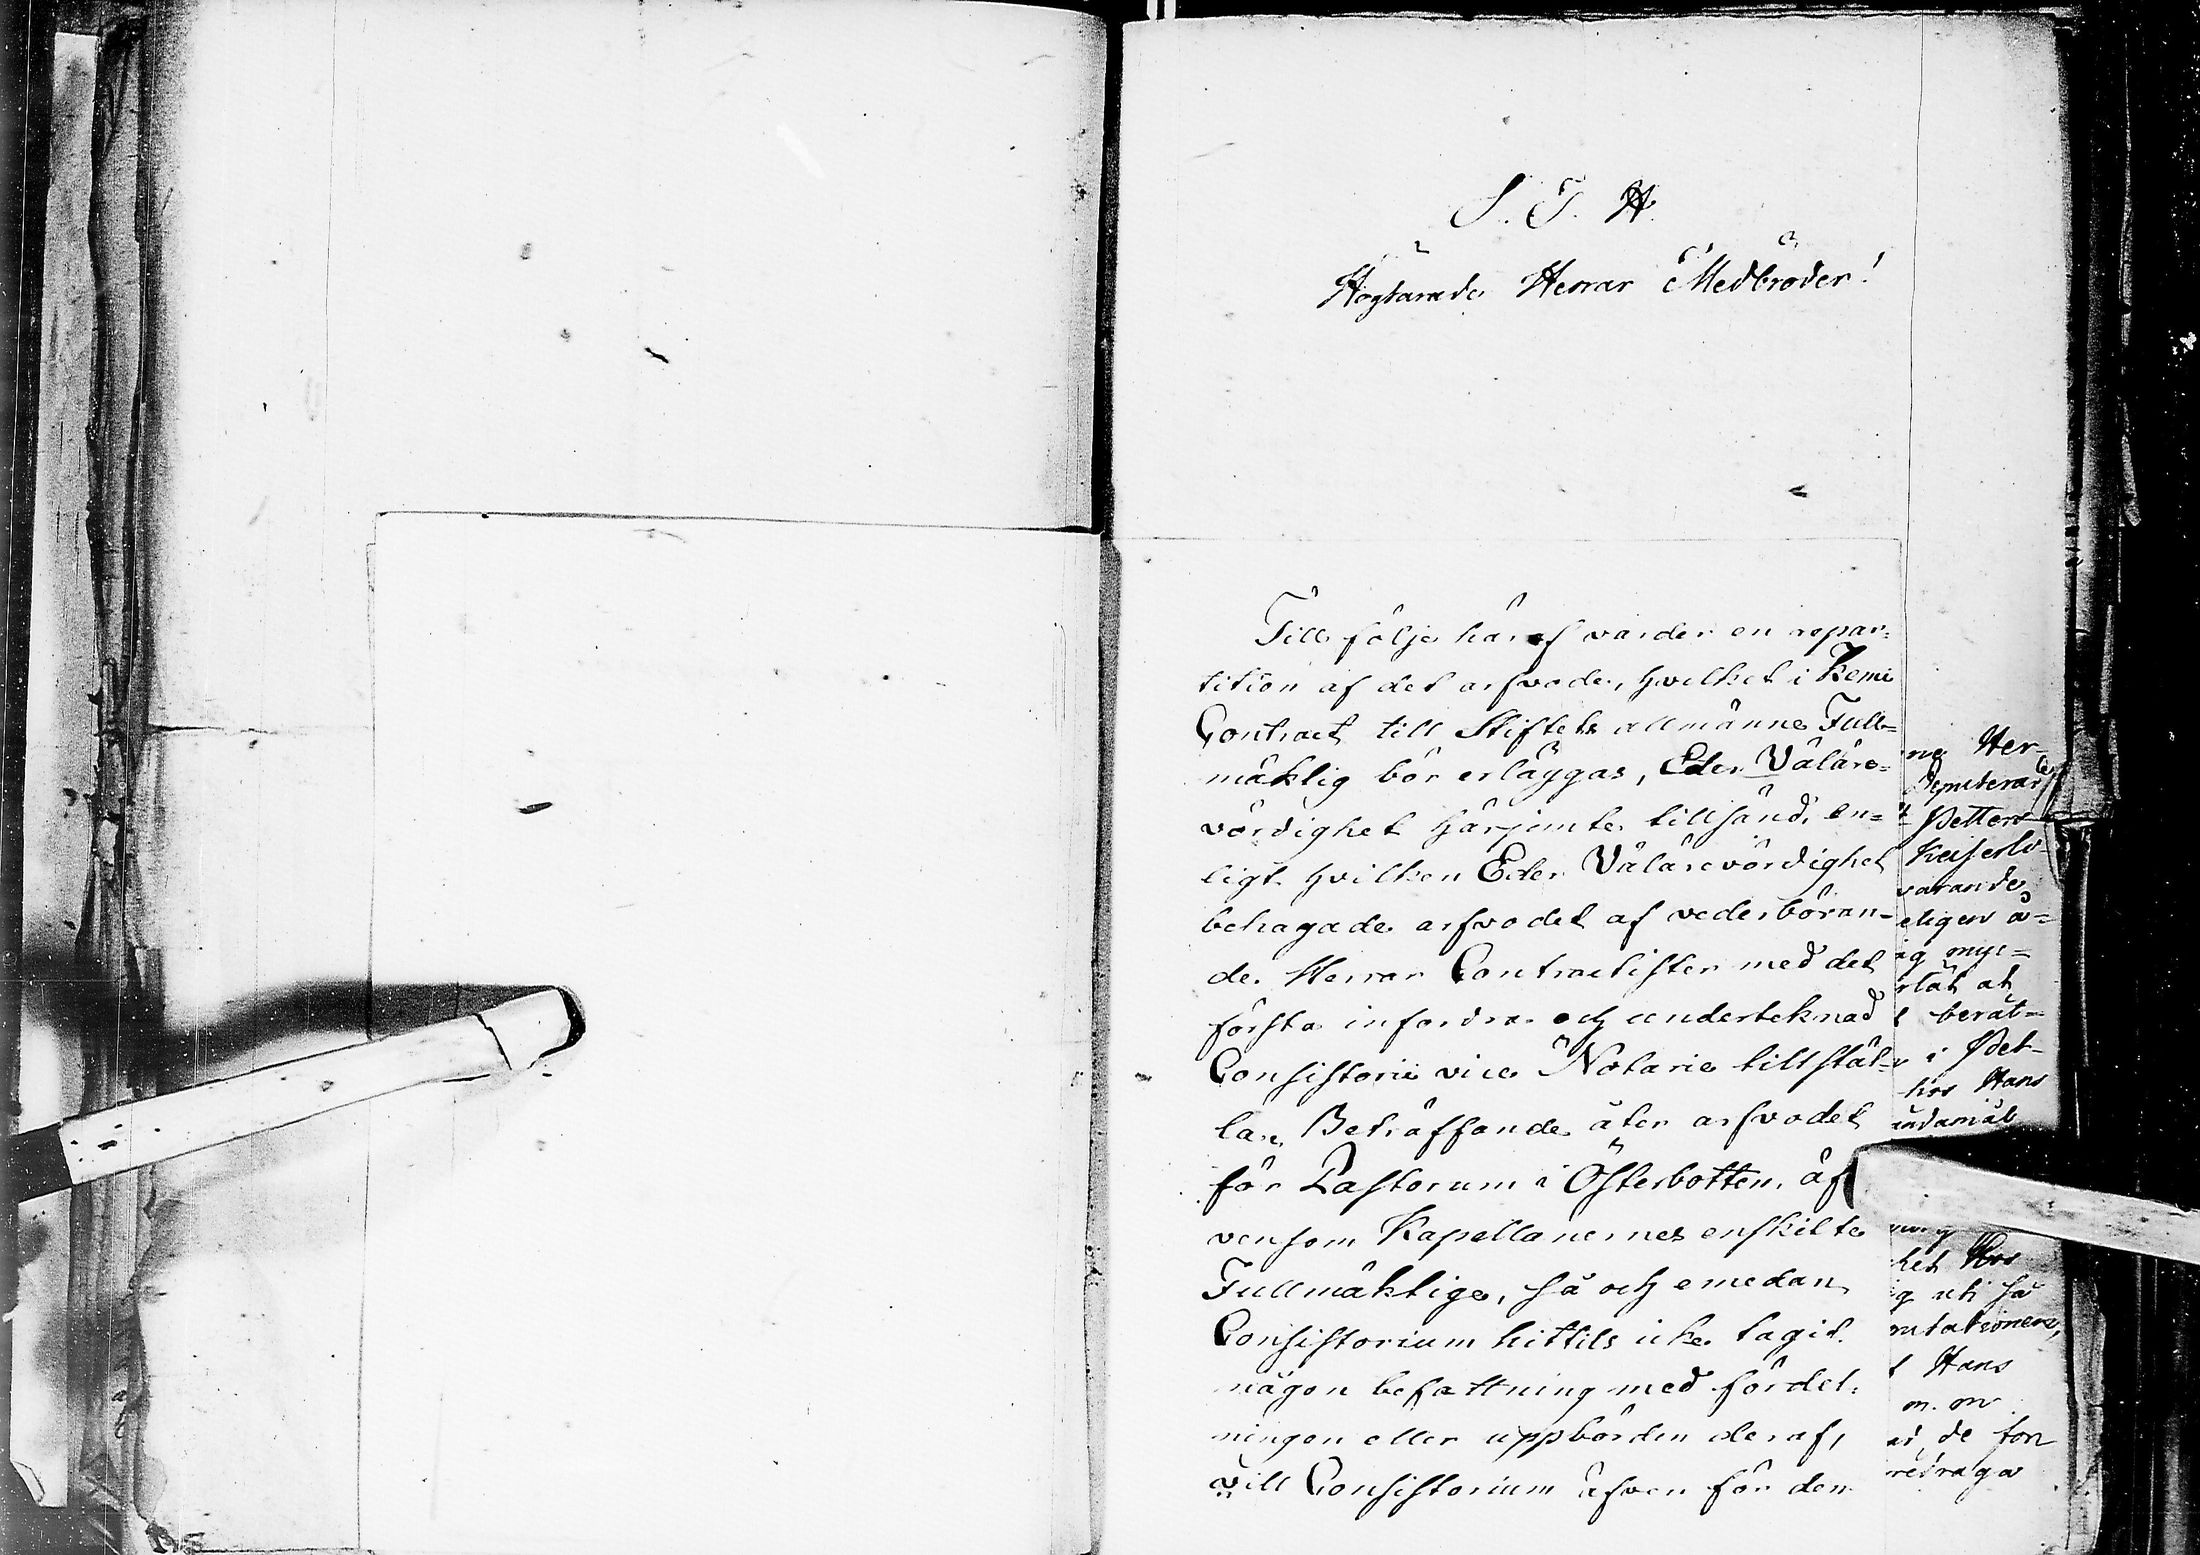 S. T. H.
Högtärade Herrar Medbröder!
Till följe häraf varder en repar-
tition af det arfvode, hvilket i Kemi
Contract till Stiftets allmänne Full-
mäktig bör erläggas, Eder Välärе-
vördighet härjemte tillsänd, en-
ligt hvilken Eder Välärevördighet
behagade arfvodet af vederböran-
de Herrar Contractister med det
första infordra och undertecknad
Consistorii vice Notarie tillstäl-
la. Beträffande åter arfvodet
för Pastorum i Österbotten äf
vensom Kapellanernes enskilte
Fullmäktige, så och emedan
Consistorium hittils icke tagit
någon befattning med fördel-
ningen eller uppbörden deraf,
vill Consistorium äfven för den
ne Her-
Deputerar
Petters
Keiserli-
varande
eligen å-
ig myc-
rlåt at
t berät-
i Pet-
hos Hans
ändamål
ning
ket Hos
g uti så
mtationere,
t Hans
m. m
at, de för
redraga